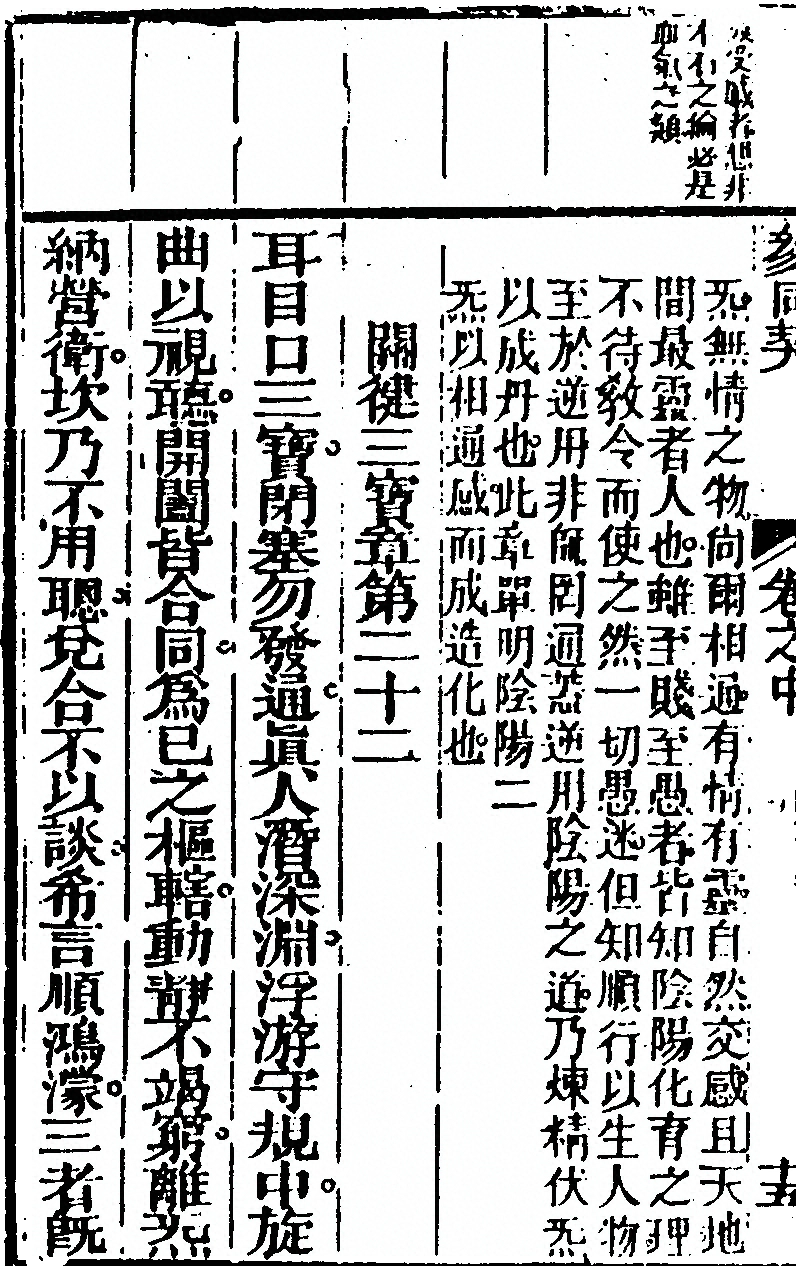 受
不
之倫必是
血氣之類
參同契
卷之中
炁無情之物尚爾相通有情有靈自然交感且天地
間最靈者人也雖至賤至愚者皆知陰陽化育之理
不待教令而使之然一切愚迷但知順行以生人物
至於逆用非師罔通蓋逆用陰陽之道乃煉精伏炁
以成丹也此章單明陰陽二
炁以相通感而成造化也
關鍵三寶章第二十二
耳目口三寶閉塞勿發通眞人潛深淵浮游守規中旋
曲以視聽開闔皆合同爲已之樞轄動靜不竭窮離炁
納營衛坎乃不用聰兌合不以談希言順鴻濛三者旣